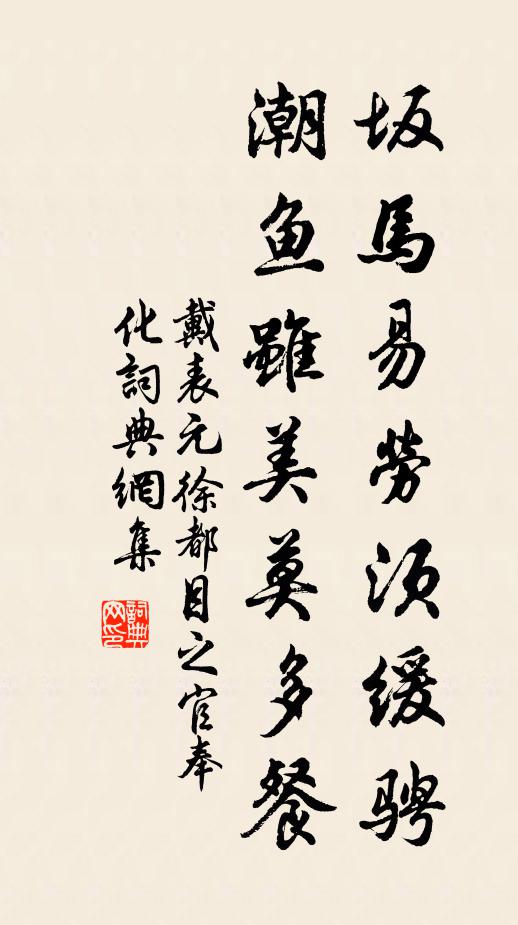 坂馬易勞須緩骋
潮鱼雖美莫多餐
戴表元徐都目之官奉
化詞典網集
詞典网印